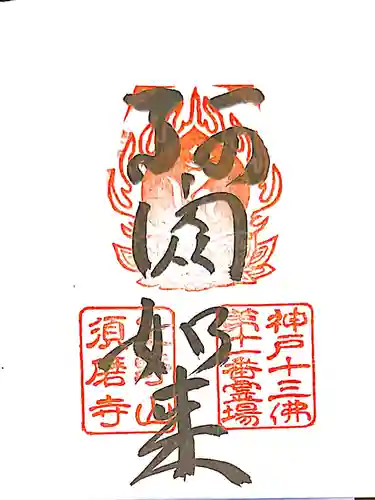 阿閦如来
神戸十三佛
第十一番霊場
上野山
須磨寺